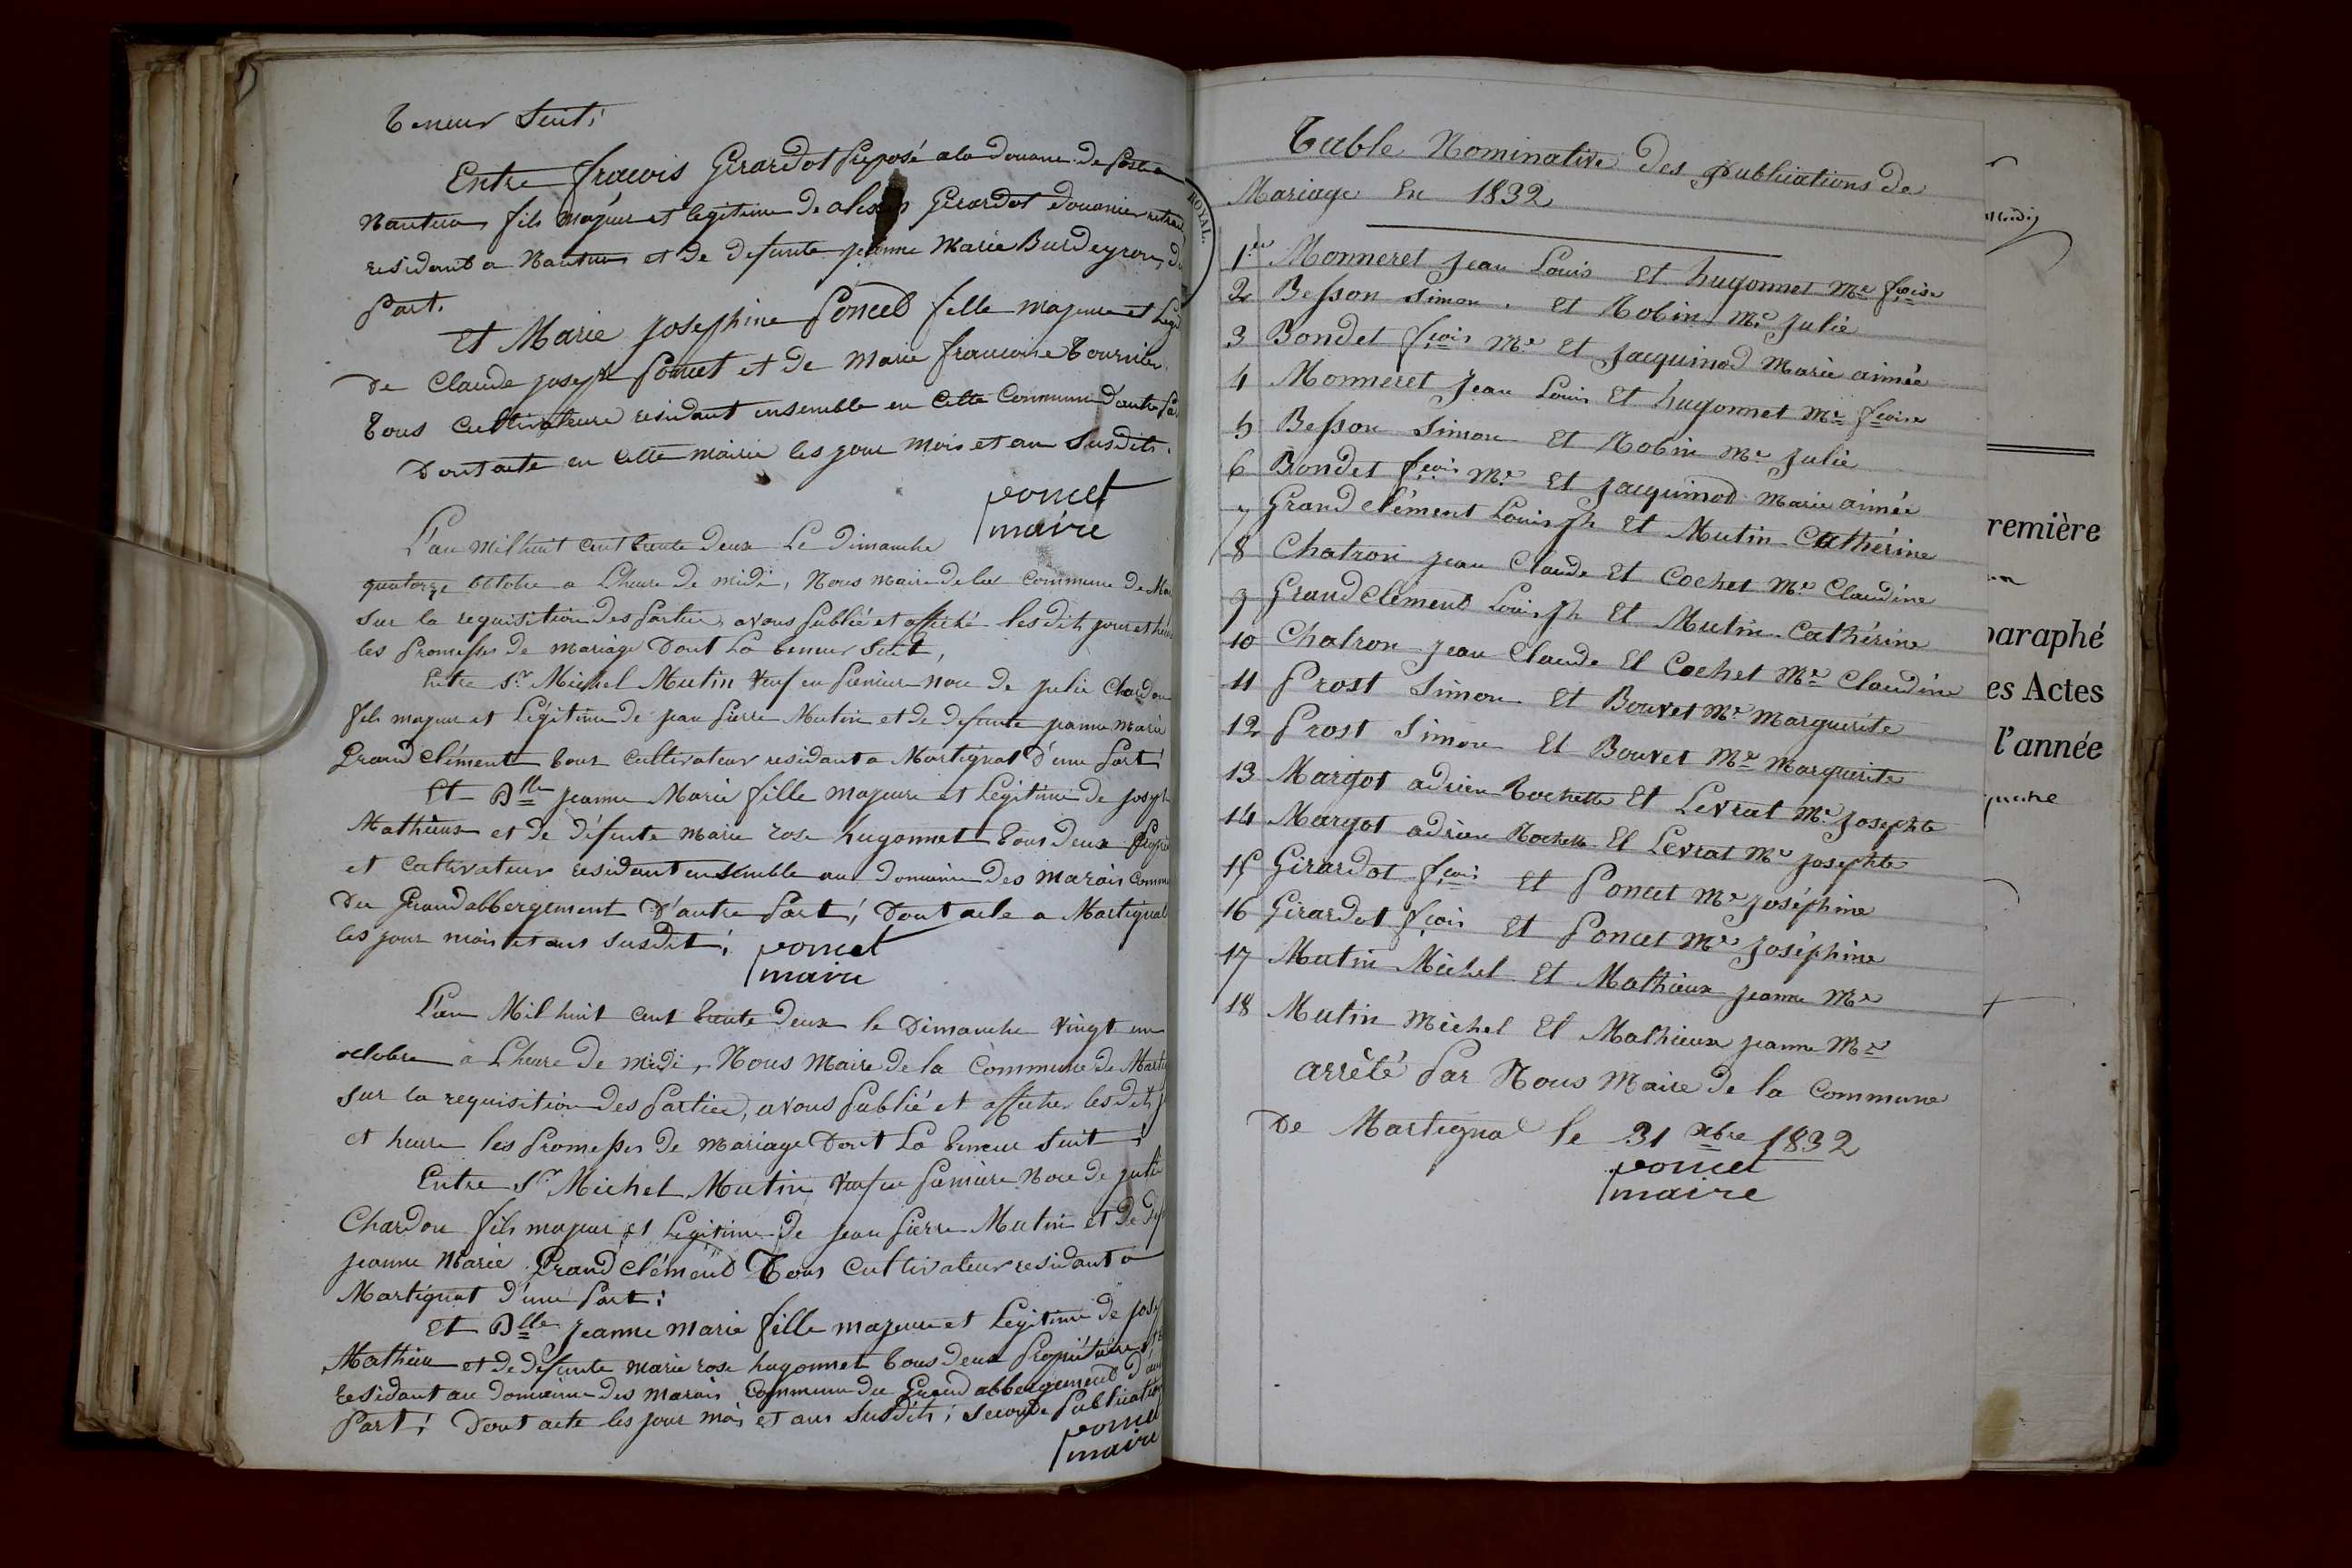 teneur Suit;
Entre fracois Girardot Préposé a la douane de poste a
Nantua fils majeur et legitime de alexis Girardot douanier retraité
residant a Nantua et de defunte jeanne Marie Burdeyron, d
part.
Et Marie Josephine Poncet fille majeure et Legi
De Claude joseph Poncet et de Marie francoise Tournier
Tous Cultivateurs residant ensemble en Cette Commune d'autre Pa
Dont acte en Cette mairie les jour mois et an Susdits.
poncet
maire
L'an Mil huit Cent trente Deux Le Dimanche
quatorze octobre a L'heure De midi, Nous maire de la Commune De Mar
Sur la requisition des Parties, avons Publié et affiché les dits jour et heure
les Promesses de mariage Dont La teneur Suit,
Entre Sr. Michel Mutin Veuf en Premiere noce de julie Chardon
fils majeur et Légitime de jean Pierre Mutin et de defunte jeanne Marie
Grand clément tous Cultivateur residant a Martignat d'une Part;
Et Dlle jeanne Marie fille majeure et Légitime de joseph
Mathieux et de défunte Marie rose hugonnet tous deux Propri
et Cultivateur residant ensemble au domaine des marais Commu
Du Grand abbergement D'autre Part; Dont acte a Martignat
les jour mois et ans susdit;
poncet
maire
L'an Mil huit Cent trente Deux le Dimanche vingt un
octobre a L'heure De midi, Nous Maire De la Commune de Marti
Sur la requisition Des Parties, avons Publié et afficher lesdits j
et heure les Promesses de mariage Dont La teneur Suit;
Entre Sr. Michel Mutin Veuf en Premiere Noce de julie
Chardon fils majeur et Légitime de jean Pierre Mutin et De déf
jeanne Marie Grand Clément Tous Cultivateur residant a
Martignat d'une Part;
Et Dlle jeanne marie fille majeure et Légitime de josep
Mathieu et de défunte marie rose hugonnet tous deux Propriétaire et
residant au domaine des marais Commune du Grand abbergement d'au
Part; Dont acte les jour mois et ans susdits; seconde Publication
poncet
maire
ROYAL.
Table Nominative des publications de
Mariage En 1832
1er Monneret Jean Louis et hugonnet Me fçoise
2 Besson Simon. et Robin Me Julie
3 Bondet fçois Me et Jacquinod Marie aimée
4 Monneret Jean Louis Et hugonnet Me fçoise
5 Besson Simon Et Robin Me Julie
6 Bondet fçois Me Et Jacquinod Marie aimée
7 Grand Clément Louis Jh Et Mutin Cathérine
8 Chatron Jean Claude Et Cochet Me Claudine
9 Grand Clément Louis Jh Et Mutin Cathérine
10 Chatron Jean Claude Et Cochet Me Claudine
11 Prost Simon Et Bouvet Me Marguerite
12 Prost Simon Et Bouvet Me Marguerite
13 Margot adrien Rochette Et Levrat Me Josephte
14 Margot adrien Rochette Et Levrat Me Josephte
15 Girardot fçois Et Poncet Me Joséphine
16 Girardot fçois Et Poncet Me Joséphine
17 Mutin Michel Et Mathieux jeanne Me
18 Mutin Michel Et Mathieux jeanne Me
arrêté Par Nous Maire de la Commune
De Martignat le 31 xbre 1832
poncet
maire
remière
paraphé
es Actes
l'année